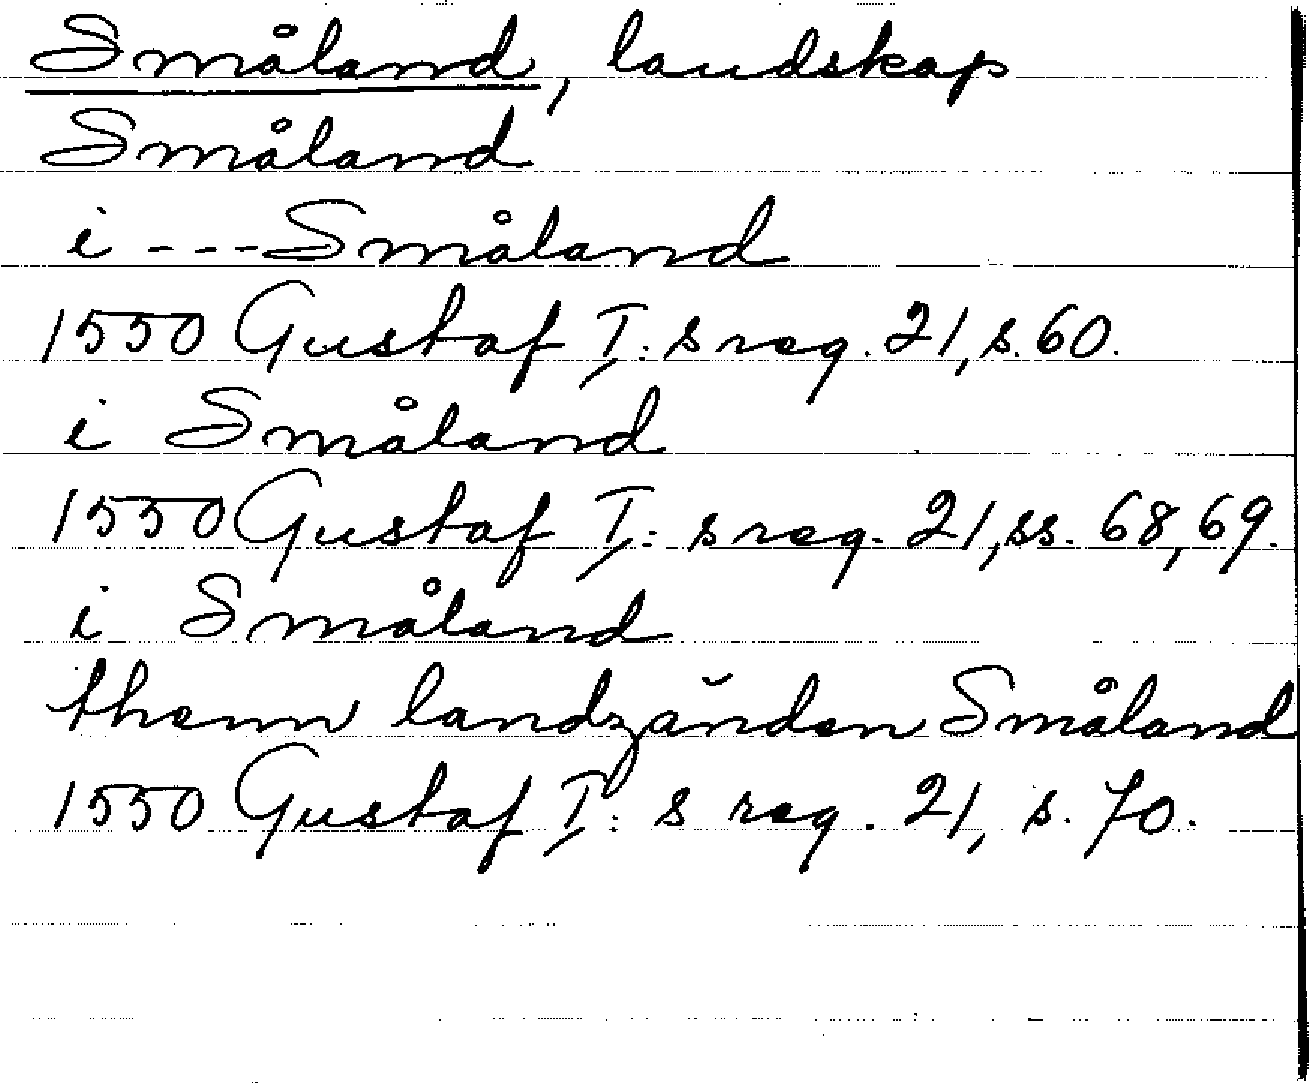 Småland, landskap
Småland
i --- Småland
1550 Gustaf I:s reg. 21, s. 60.
i Småland
1550 Gustaf I:s reg. 21, ss. 68, 69.
i Småland
thenn landzänden Småland
1550 Gustaf I:s reg. 21, s. 70.